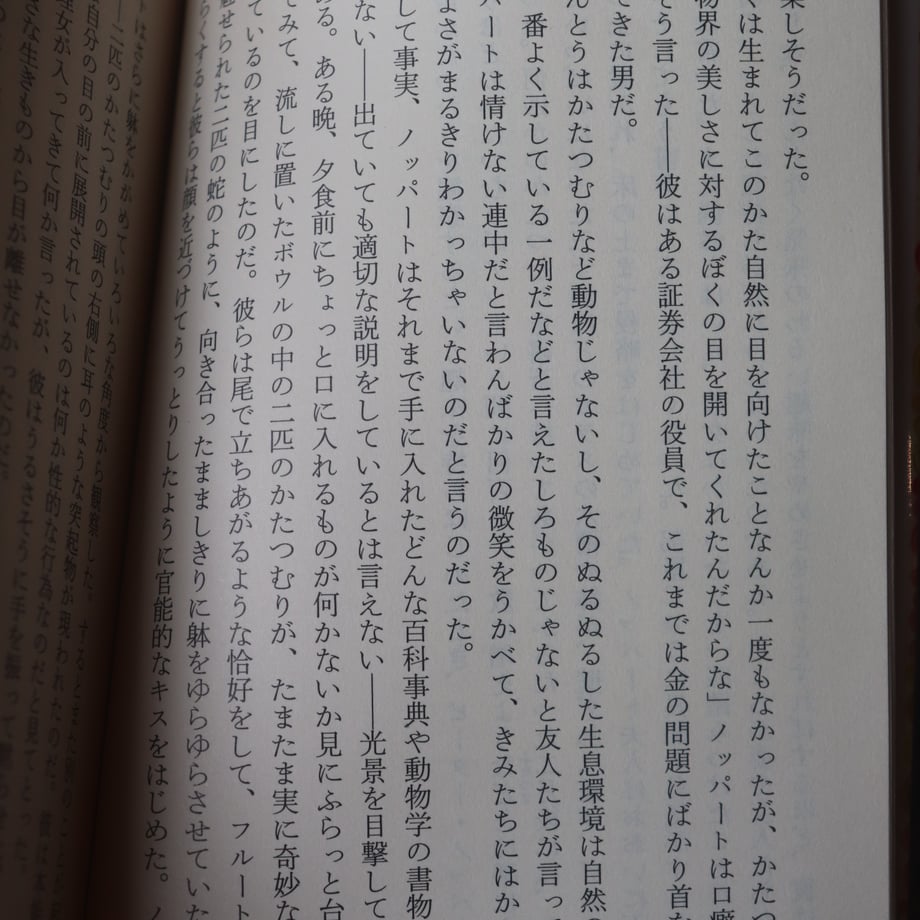 楽しそうだった。
くは生まれてこのかた自然に目を向けたことなんか一度もなかったが、かたつ
物界の美しさに対するぼくの目を開いてくれたんだからな」ノッパートは口癖
そう言った――彼はある証券会社の役員で、これまでは金の問題にばかり首な
できた男だ。
んとうはかたつむりなど動物じゃないし、そのぬるぬるした生息環境は自然の
番よく示している一例だなどと言えたしろものじゃないと友人たちが言っ
パートは情けない連中だと言わんばかりの微笑をうかべて、きみたちにはか
よさがまるきりわかっちゃいないのだと言うのだった。
して事実、ノッパートはそれまで手に入れたどんな百科事典や動物学の書物
ない――出ていても適切な説明をしているとは言えない――光景を目撃して
ある。ある晩、夕食前にちょっと口に入れるものが何かないか見にふらっと台
てみて、流しに置いたボウルの中の二匹のかたつむりが、たまたま実に奇妙な
ているのを目にしたのだ。彼らは尾で立ちあがるような恰好をして、フルート
魅せられた二匹の蛇のように、向き合ったまましきりに躰をゆらゆらさせていた
らくすると彼らは顔を近づけてうっとりしたように官能的なキスをはじめた。ノ
トはさらに躰をかがめていろいろな角度から観察した。するとまた
二匹のかたつむりの頭の右側に耳のような突起物が現われたのだ。彼は本
自分の目の前に展開されているのは何か性的な行為なのだと見てとった。
理女が入ってきて何か言ったが、彼はうるさそうに手を振って
さな生きものから目が離せなかったのだ。